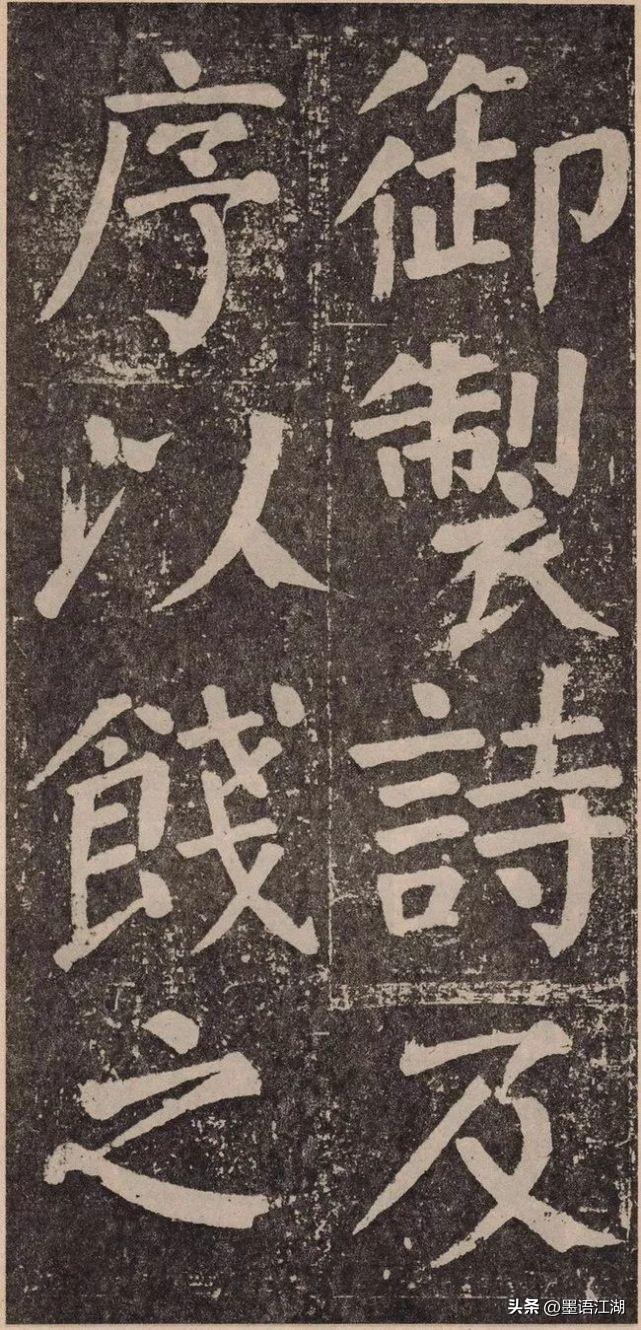 御製詩及
序以餞之
头条 @墨语江湖